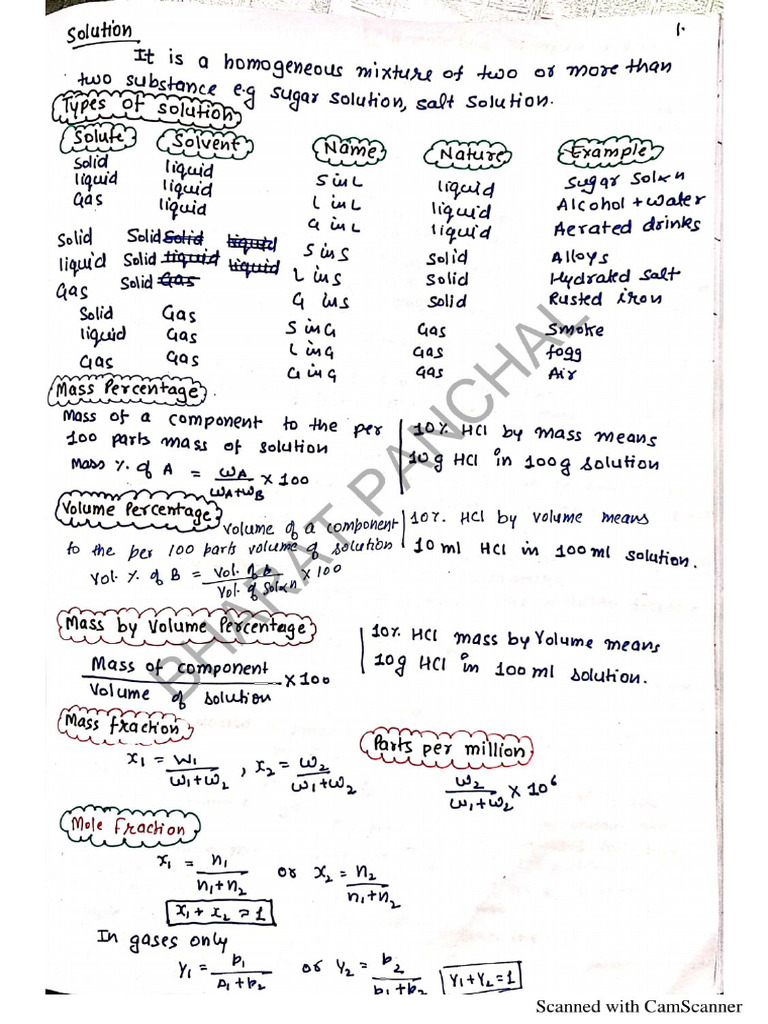 Solution
1.
It is a homogeneous mixture of two or more than
two substance e.g sugar solution, salt solution.
Types of solution
Solute Solvent Name Nature Example
Solid liquid S in L liquid Sugar Solxn
liquid liquid L in L liquid Alcohol + water
Gas liquid G in L liquid Aerated drinks
Solid Solid Solid liquid S in S Solid Alloys
liquid Solid liquid liquid L in S Solid Hydrated salt
Gas Solid Gas G in S Solid Rusted iron
Solid Gas S in G Gas Smoke
liquid Gas L in G Gas fogg
Gas Gas G in G Gas Air
Mass Percentage
Mass of a component to the per
100 parts mass of solution
Mass % of A = wA/(wA+wB) × 100
10% HCl by mass means
10g HCl in 100g solution
Volume Percentage
Volume of a component
to the per 100 parts volume of solution
Vol. % of B = Vol. of B/Vol. of Solxn × 100
10%. HCl by volume means
10 ml HCl in 100 ml solution.
Mass by Volume Percentage
Mass of component/Volume of solution × 100
10%. HCl mass by Volume means
10g HCl in 100 ml solution.
Mass fraction
x1 = w1/(w1+w2) , x2 = w2/(w1+w2)
Parts per million
w2/(w1+w2) × 10^6
Mole Fraction
x1 = n1/(n1+n2) or x2 = n2/(n1+n2)
x1 + x2 = 1
In gases only
Y1 = p1/(p1+p2) or Y2 = p2/(p1+p2) Y1+Y2=1
BHARAT PANCHAL
Scanned with CamScanner